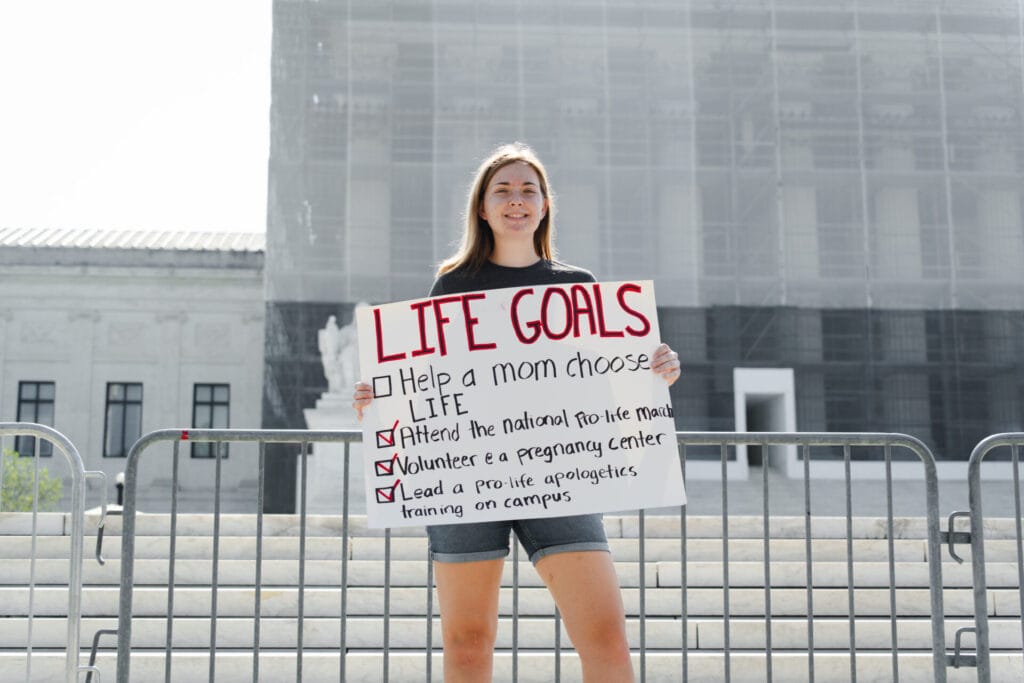 LIFE GOALS
Help a mom choose
LIFE
Attend the national pro-life march
Volunteer @ a pregnancy center
Lead a pro-life apologetics
training on campus